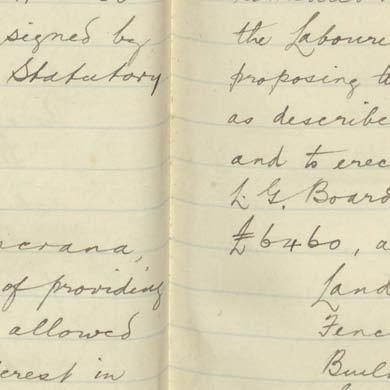 signed by
Statutory
ncrana,
of providing
allowed
erest in
the Labouri
proposing t
as describe
and to erec
L. G. Board
£6460, a
Land
Fenc
Buil